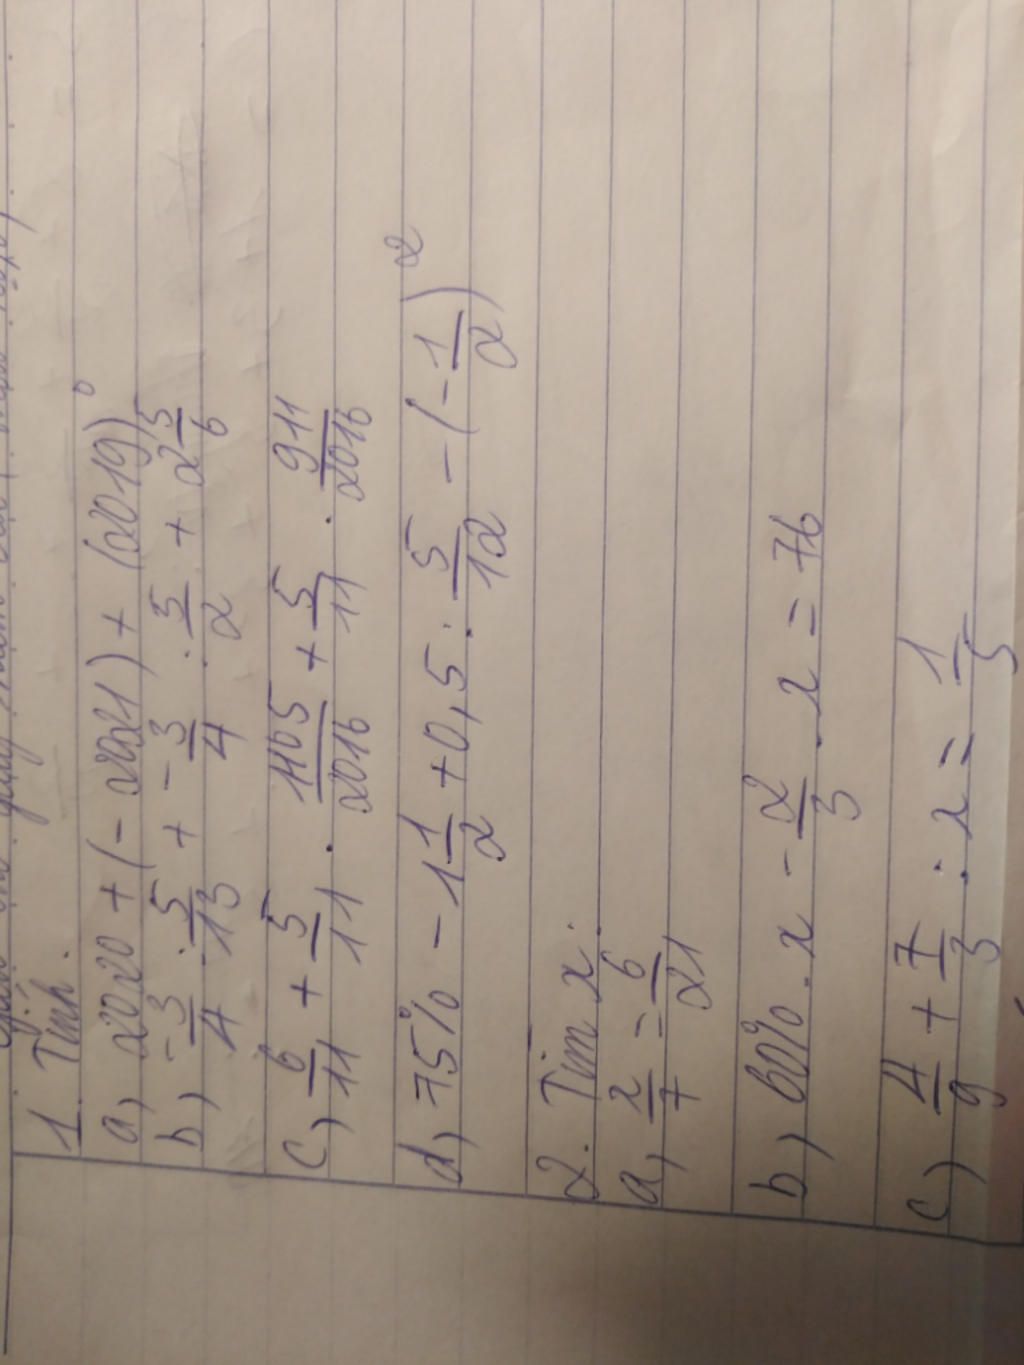 1. Tính.
a, 2020 + (-2021) + (2019)⁰
b, -3/4 . 5/13 + -3/4 . 5/2 + 2 5/6
c, 6/11 + 5/11 . 1105/2016 + 5/11 . 911/2016
d, 75% - 1 1/2 + 0,5 : 5/12 - (-1/2)²
2. Tìm x:
a, x/7 = 6/21
b, 60% . x - 2/3 . x = 76
c, 4/9 + 7/3 : x = 1/5